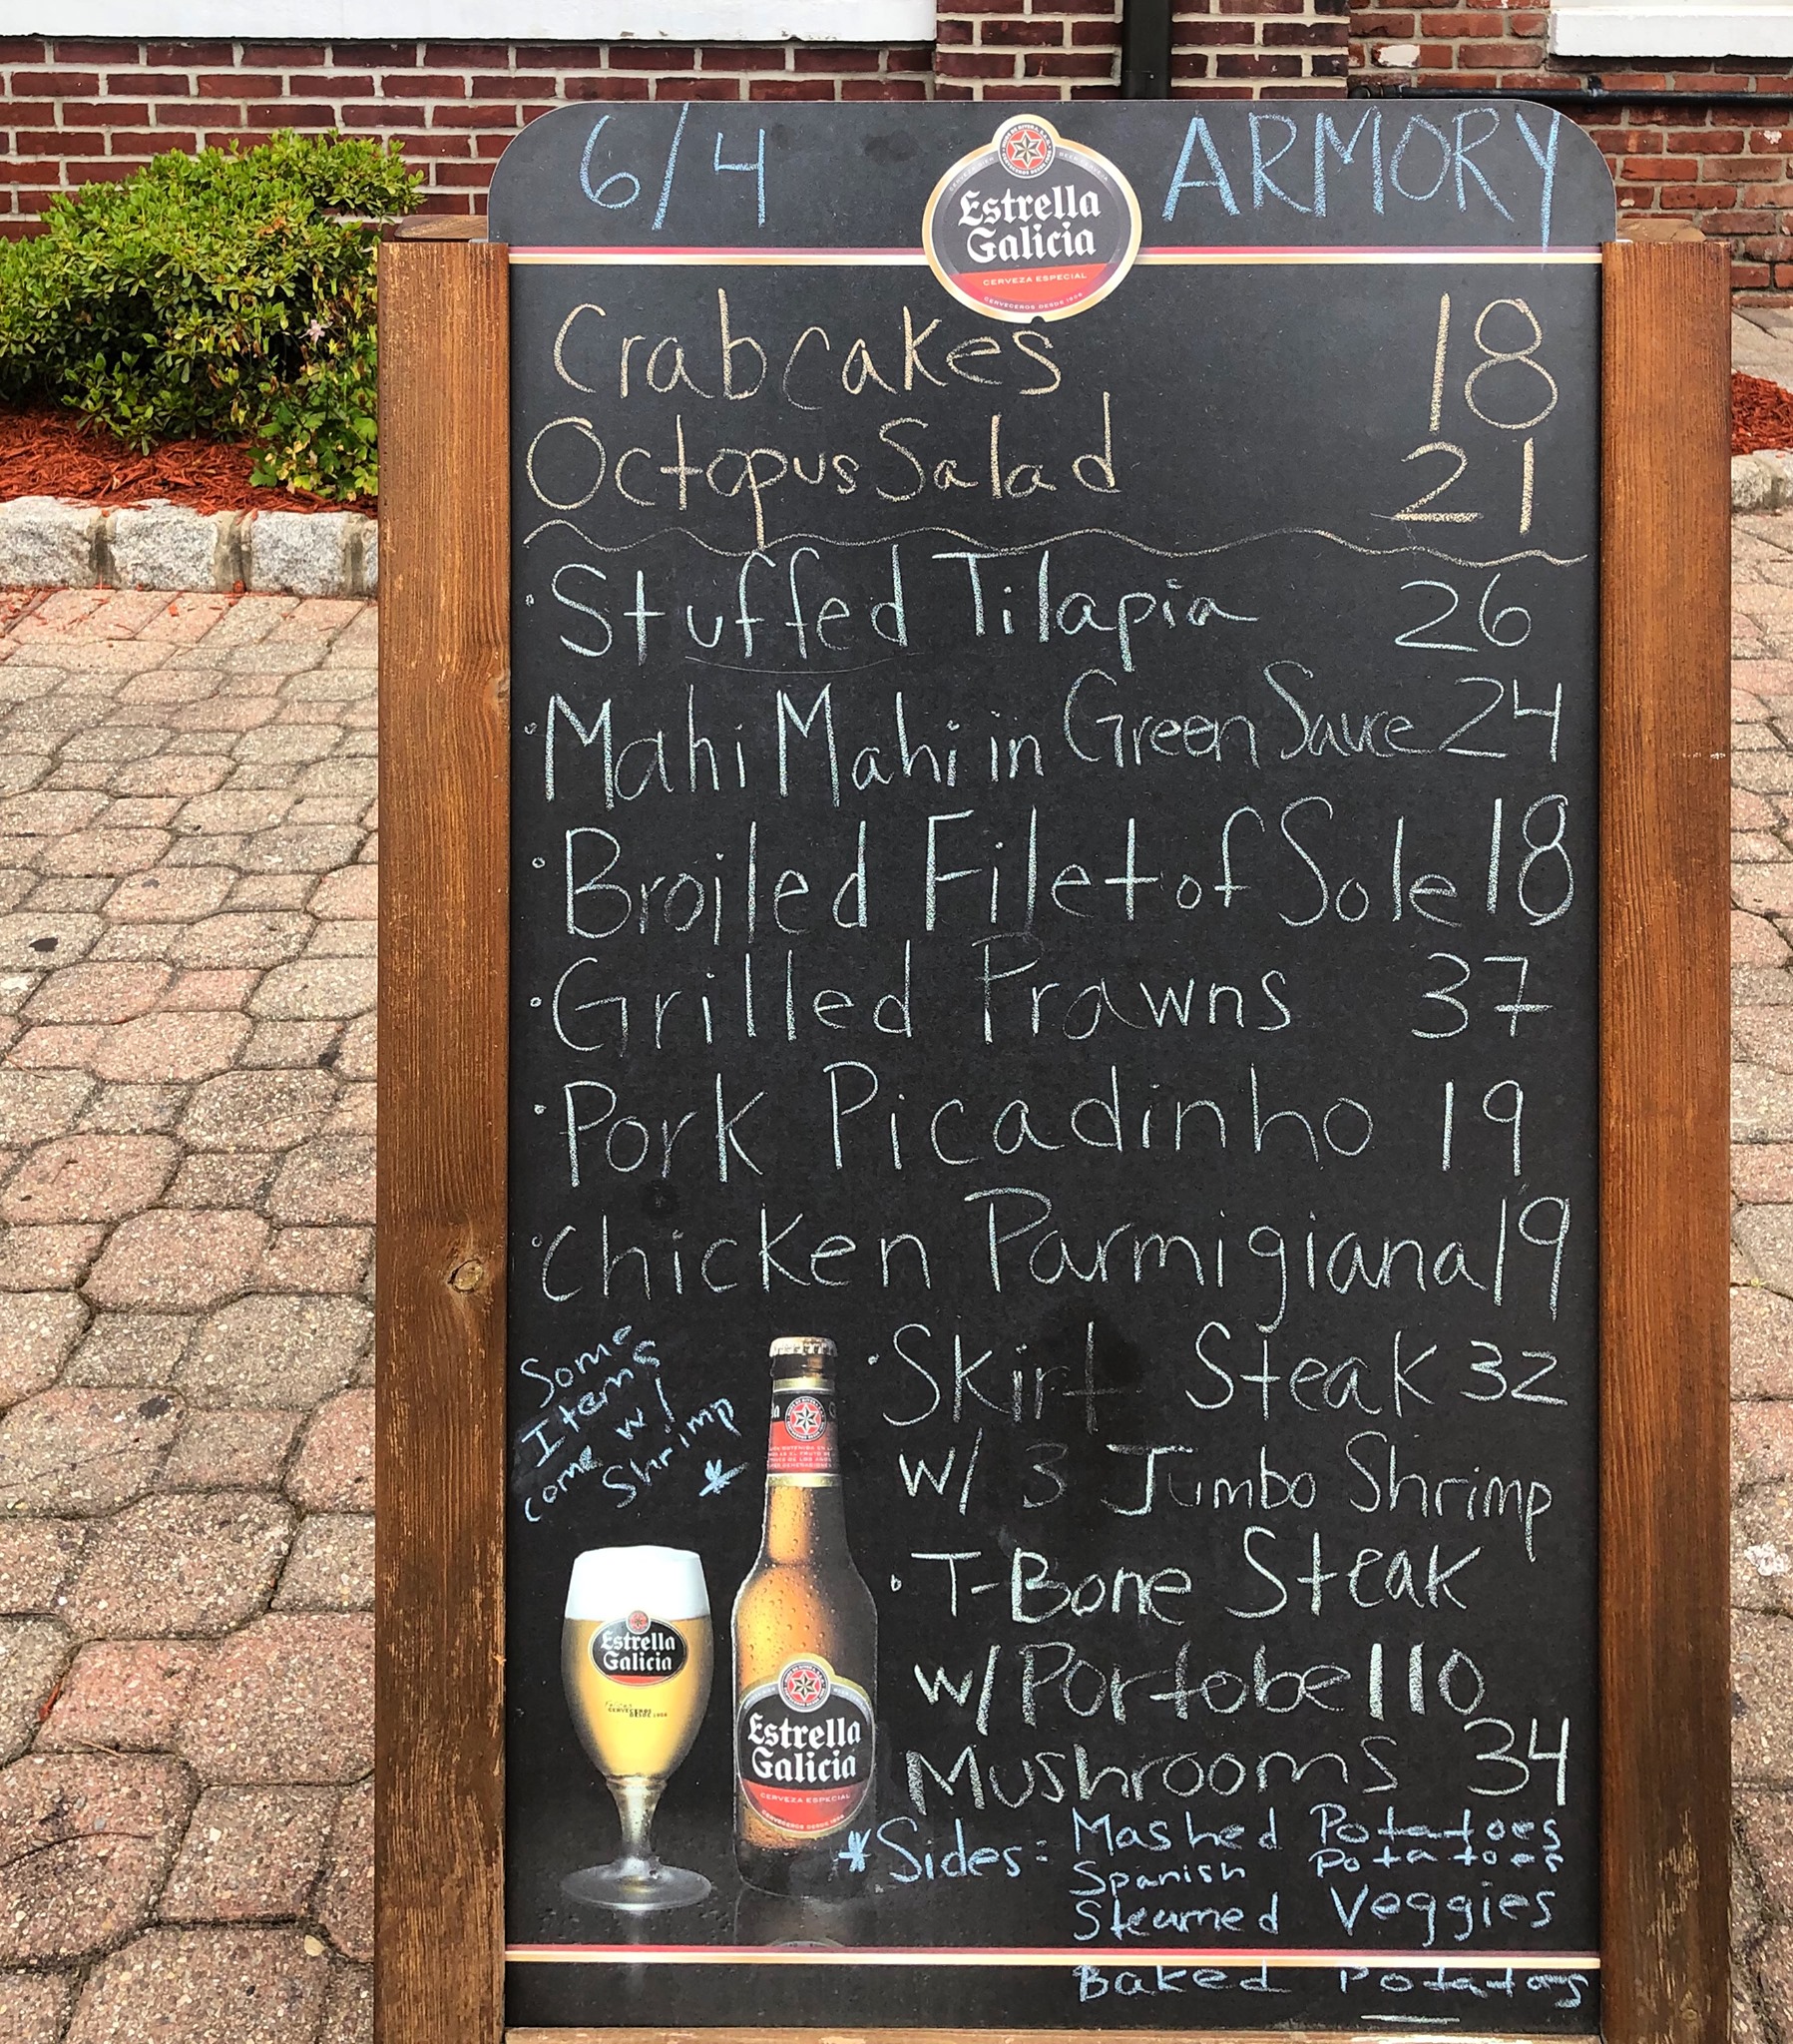 6/4 ARMORY
Estrella
Galicia
CERVEZA ESPECIAL
CERVECEROS DESDE 1906
Crabcakes 18
Octopus Salad 21
Stuffed Tilapia 26
Mahi Mahi in Green Sauce 24
Broiled Filet of Sole 18
Grilled Prawns 37
Pork Picadinho 19
Chicken Parmigiana 19
Some
Items
come w/
Shrimp
*
Skirt Steak 32
w/ 3 Jumbo Shrimp
T-Bone Steak
w/ Portobello
Mushrooms 34
*Sides: Mashed Potatoes
Spanish Potatoes
Steamed Veggies
Baked Potatoes
Estrella
Galicia
CERVECEROS
DESDE 1906
Estrella
Galicia
CERVEZA ESPECIAL
CERVECEROS DESDE 1906